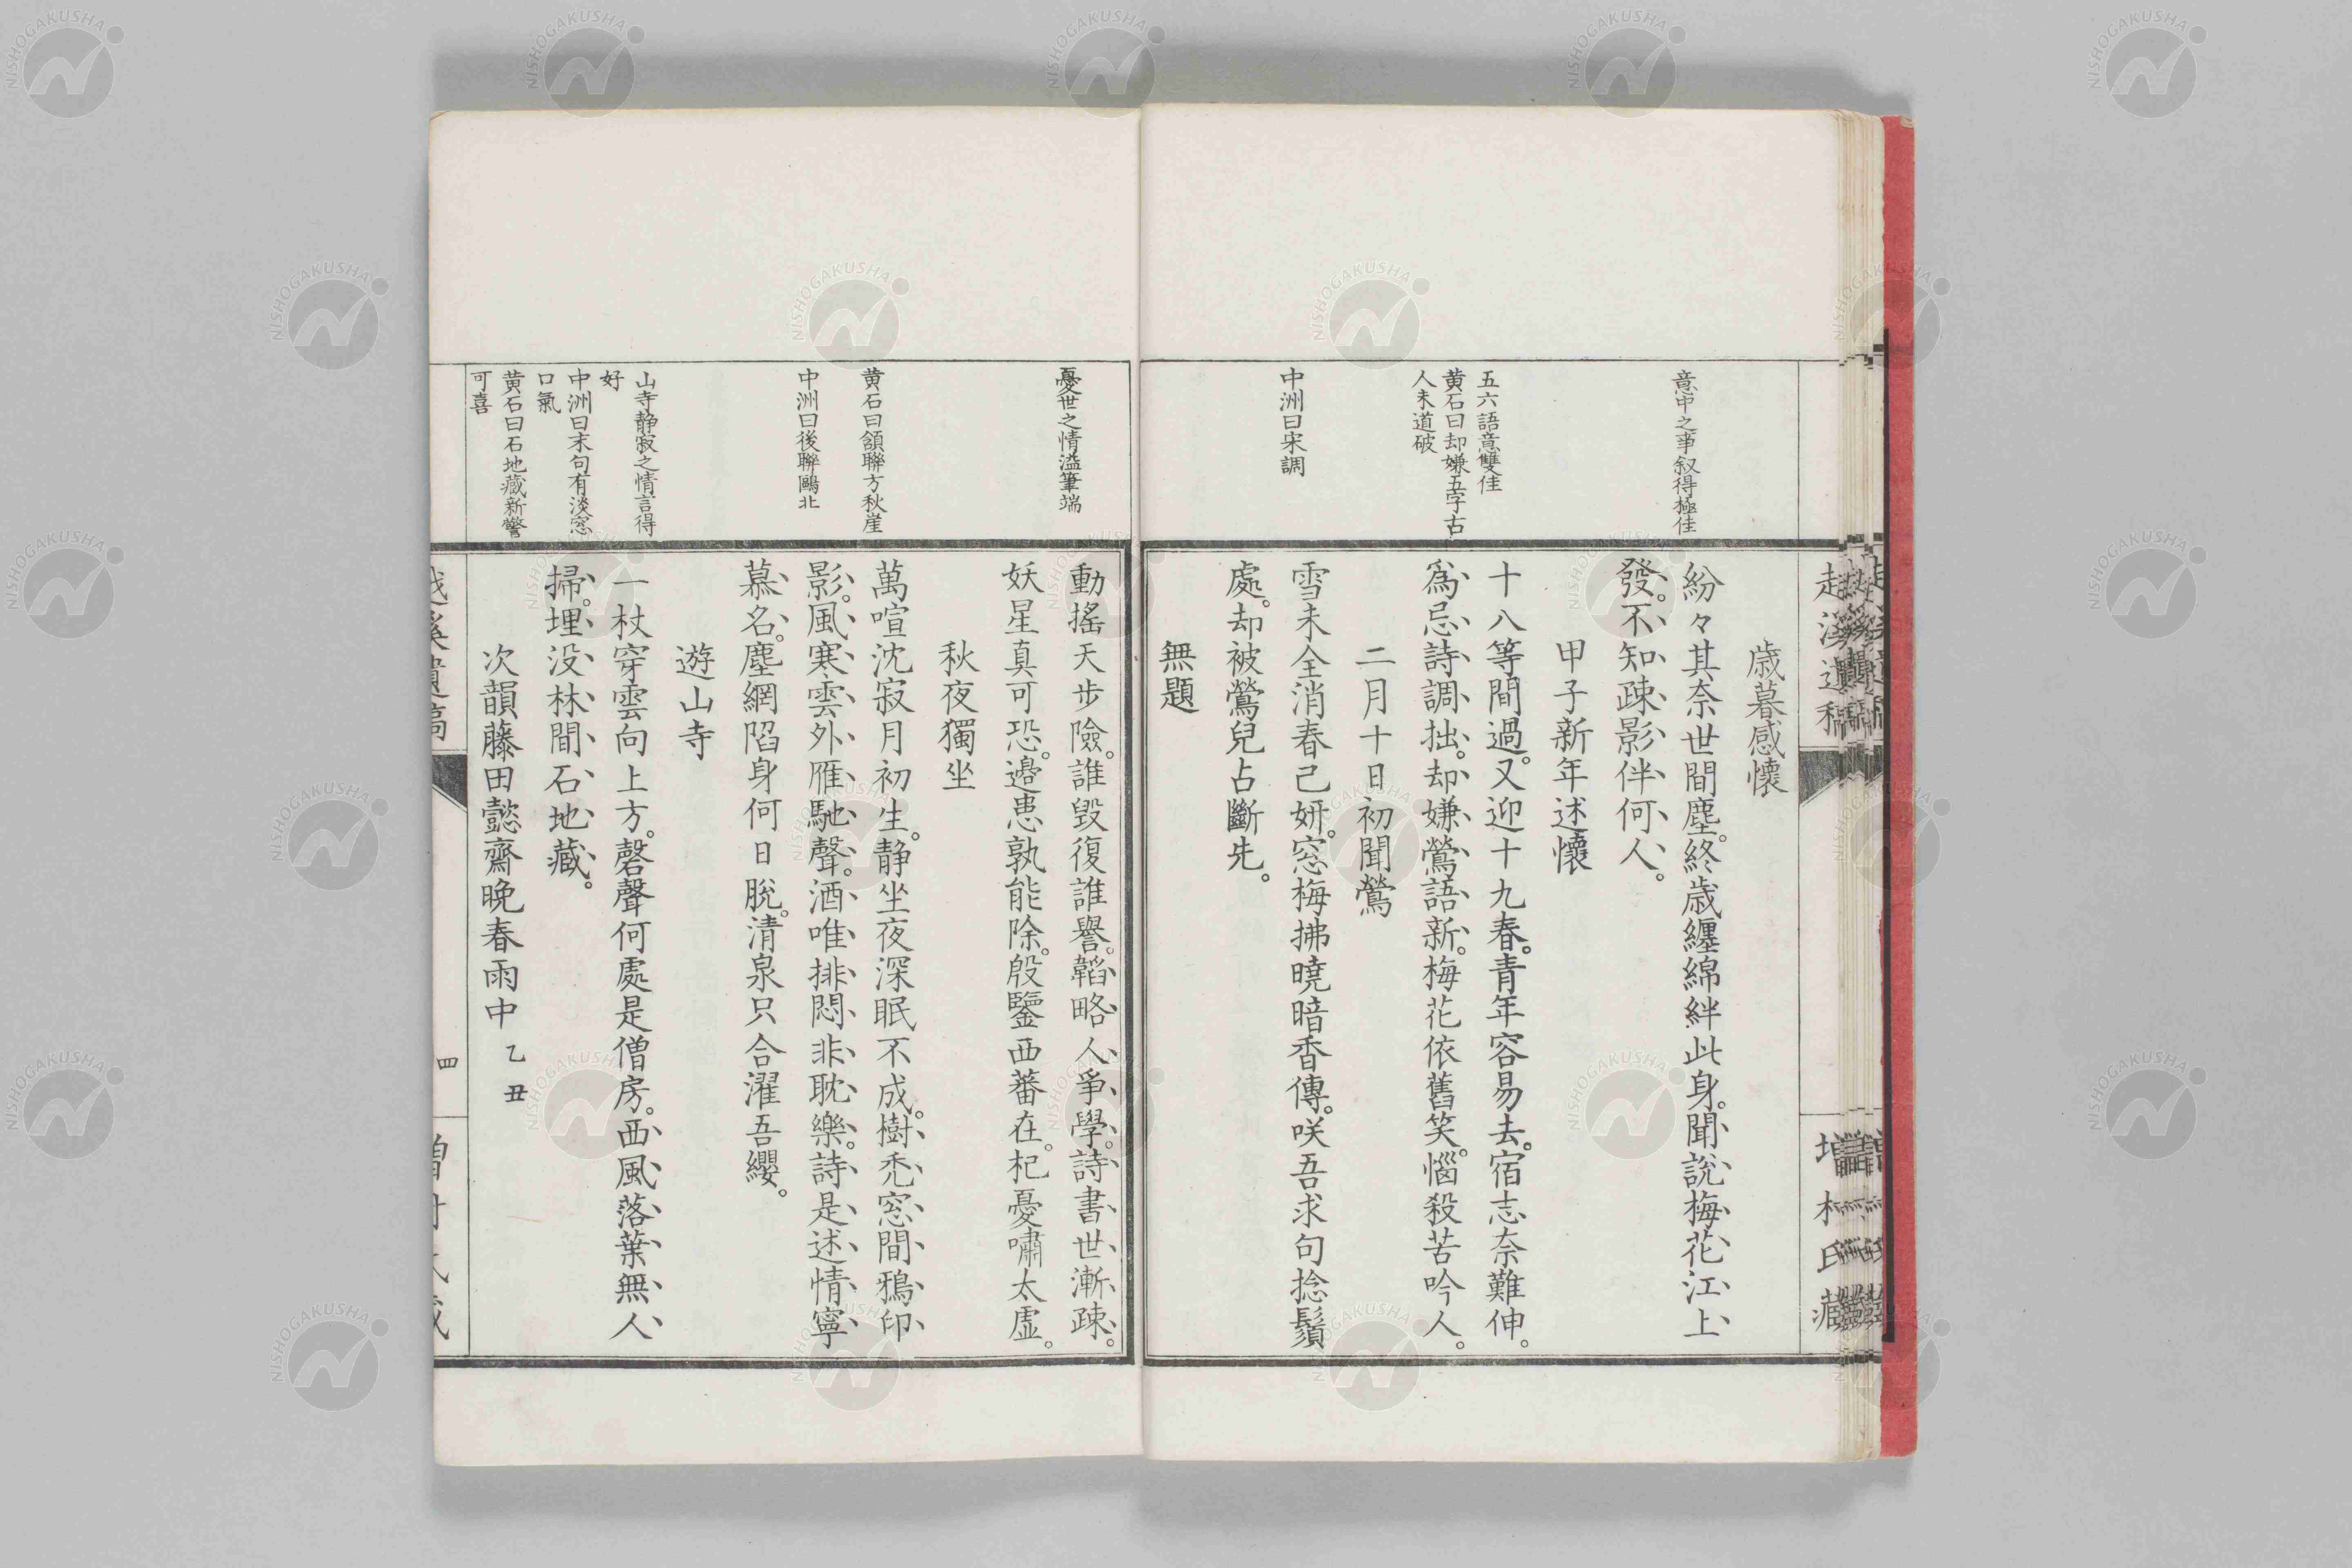 意中之事叙得極佳
五六語意雙佳
黄石曰却嫌五字古
人未道破
中洲曰宋調
歳暮感懷
紛々其奈世間塵。終歳纏綿絆此身。聞說梅花江上
發。不知疎影伴何人。
甲子新年述懷
十八等間過。又迎十九春。青年容易去。宿志奈難伸。
爲忌詩調拙。却嫌鶯語新。梅花依舊笑。惱殺苦吟人。
二月十日初聞鶯
雪未全消春已妍。窓梅拂曉暗香傳。咲吾求句捻鬚
處。却被鶯兒占斷先。
無題
憂世之情溢筆端
黄石曰頷聯方秋崖
中洲曰後聯鷗北
山寺静寂之情言得
好
中洲曰末句有淡窓
口氣
黄石曰石地藏新警
可喜
動搖天步險。誰毀復誰譽。韜略人爭學。詩書世漸疎。
妖星真可恐。邊患孰能除。殷鑒西蕃在。杞憂嘯太虛。
秋夜獨坐
萬喧沈寂月初生。静坐夜深眠不成。樹禿窓間鴉印
影。風寒雲外雁馳聲。酒唯排悶非耽樂。詩是述情寧
慕名。塵網陷身何日脫。清泉只合濯吾纓。
遊山寺
一杖穿雲向上方。磬聲何處是僧房。西風落葉無人
掃。埋没林間石地藏。
次韻藤田懿齋晩春雨中 乙丑
越溪遺稿
四
NISHOGAKUSHA